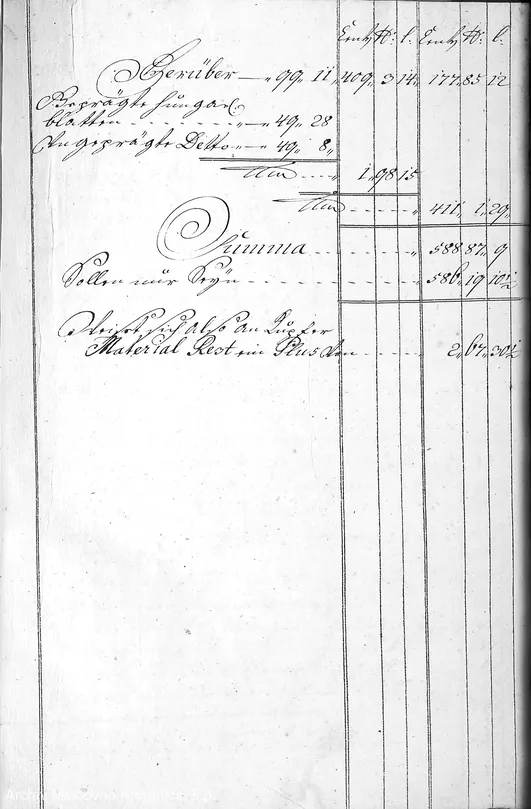 Cent ℔: l. Cent ℔: l.
Herüber — „ 99„ 11 „ 409„ 3 14„ 177„ 85 12
Geprägte hungar
blatten - - - - - - - „ — 49„ 28
Ungeprägte Detto — „ — 49„ 8„
Um - - - „ 1„ 98 15
Um - - - - - - - „ 411„ 1„ 29„
Summa - - - - - - „ 588 87„ 9
Sollen nur Seyn - - - - - - „ 586„ 19 10½
Weiset sich also an Kupfer
Material Rest ein Plus von - - - - 2„ 67„ 30½